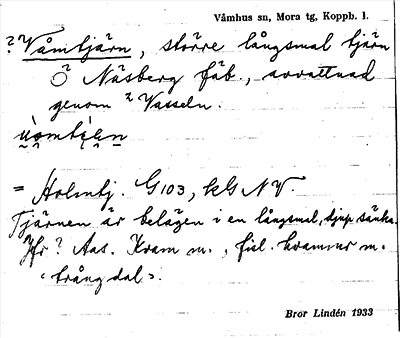 Våmhus sn, Mora tg, Koppb. l.
? Våmtjärn, större långsmal tjärn
Ö ? Näsberg fäb., avvattnad
genom ? Vasseln.
= Holmtj. G103, kG NV.
Tjärnen är belägen i en långsmal, djup sänka.
Jfr ? Aas. Kvam m., fisl. hvammr m.
‹trång dal›.
Bror Lindén 1933